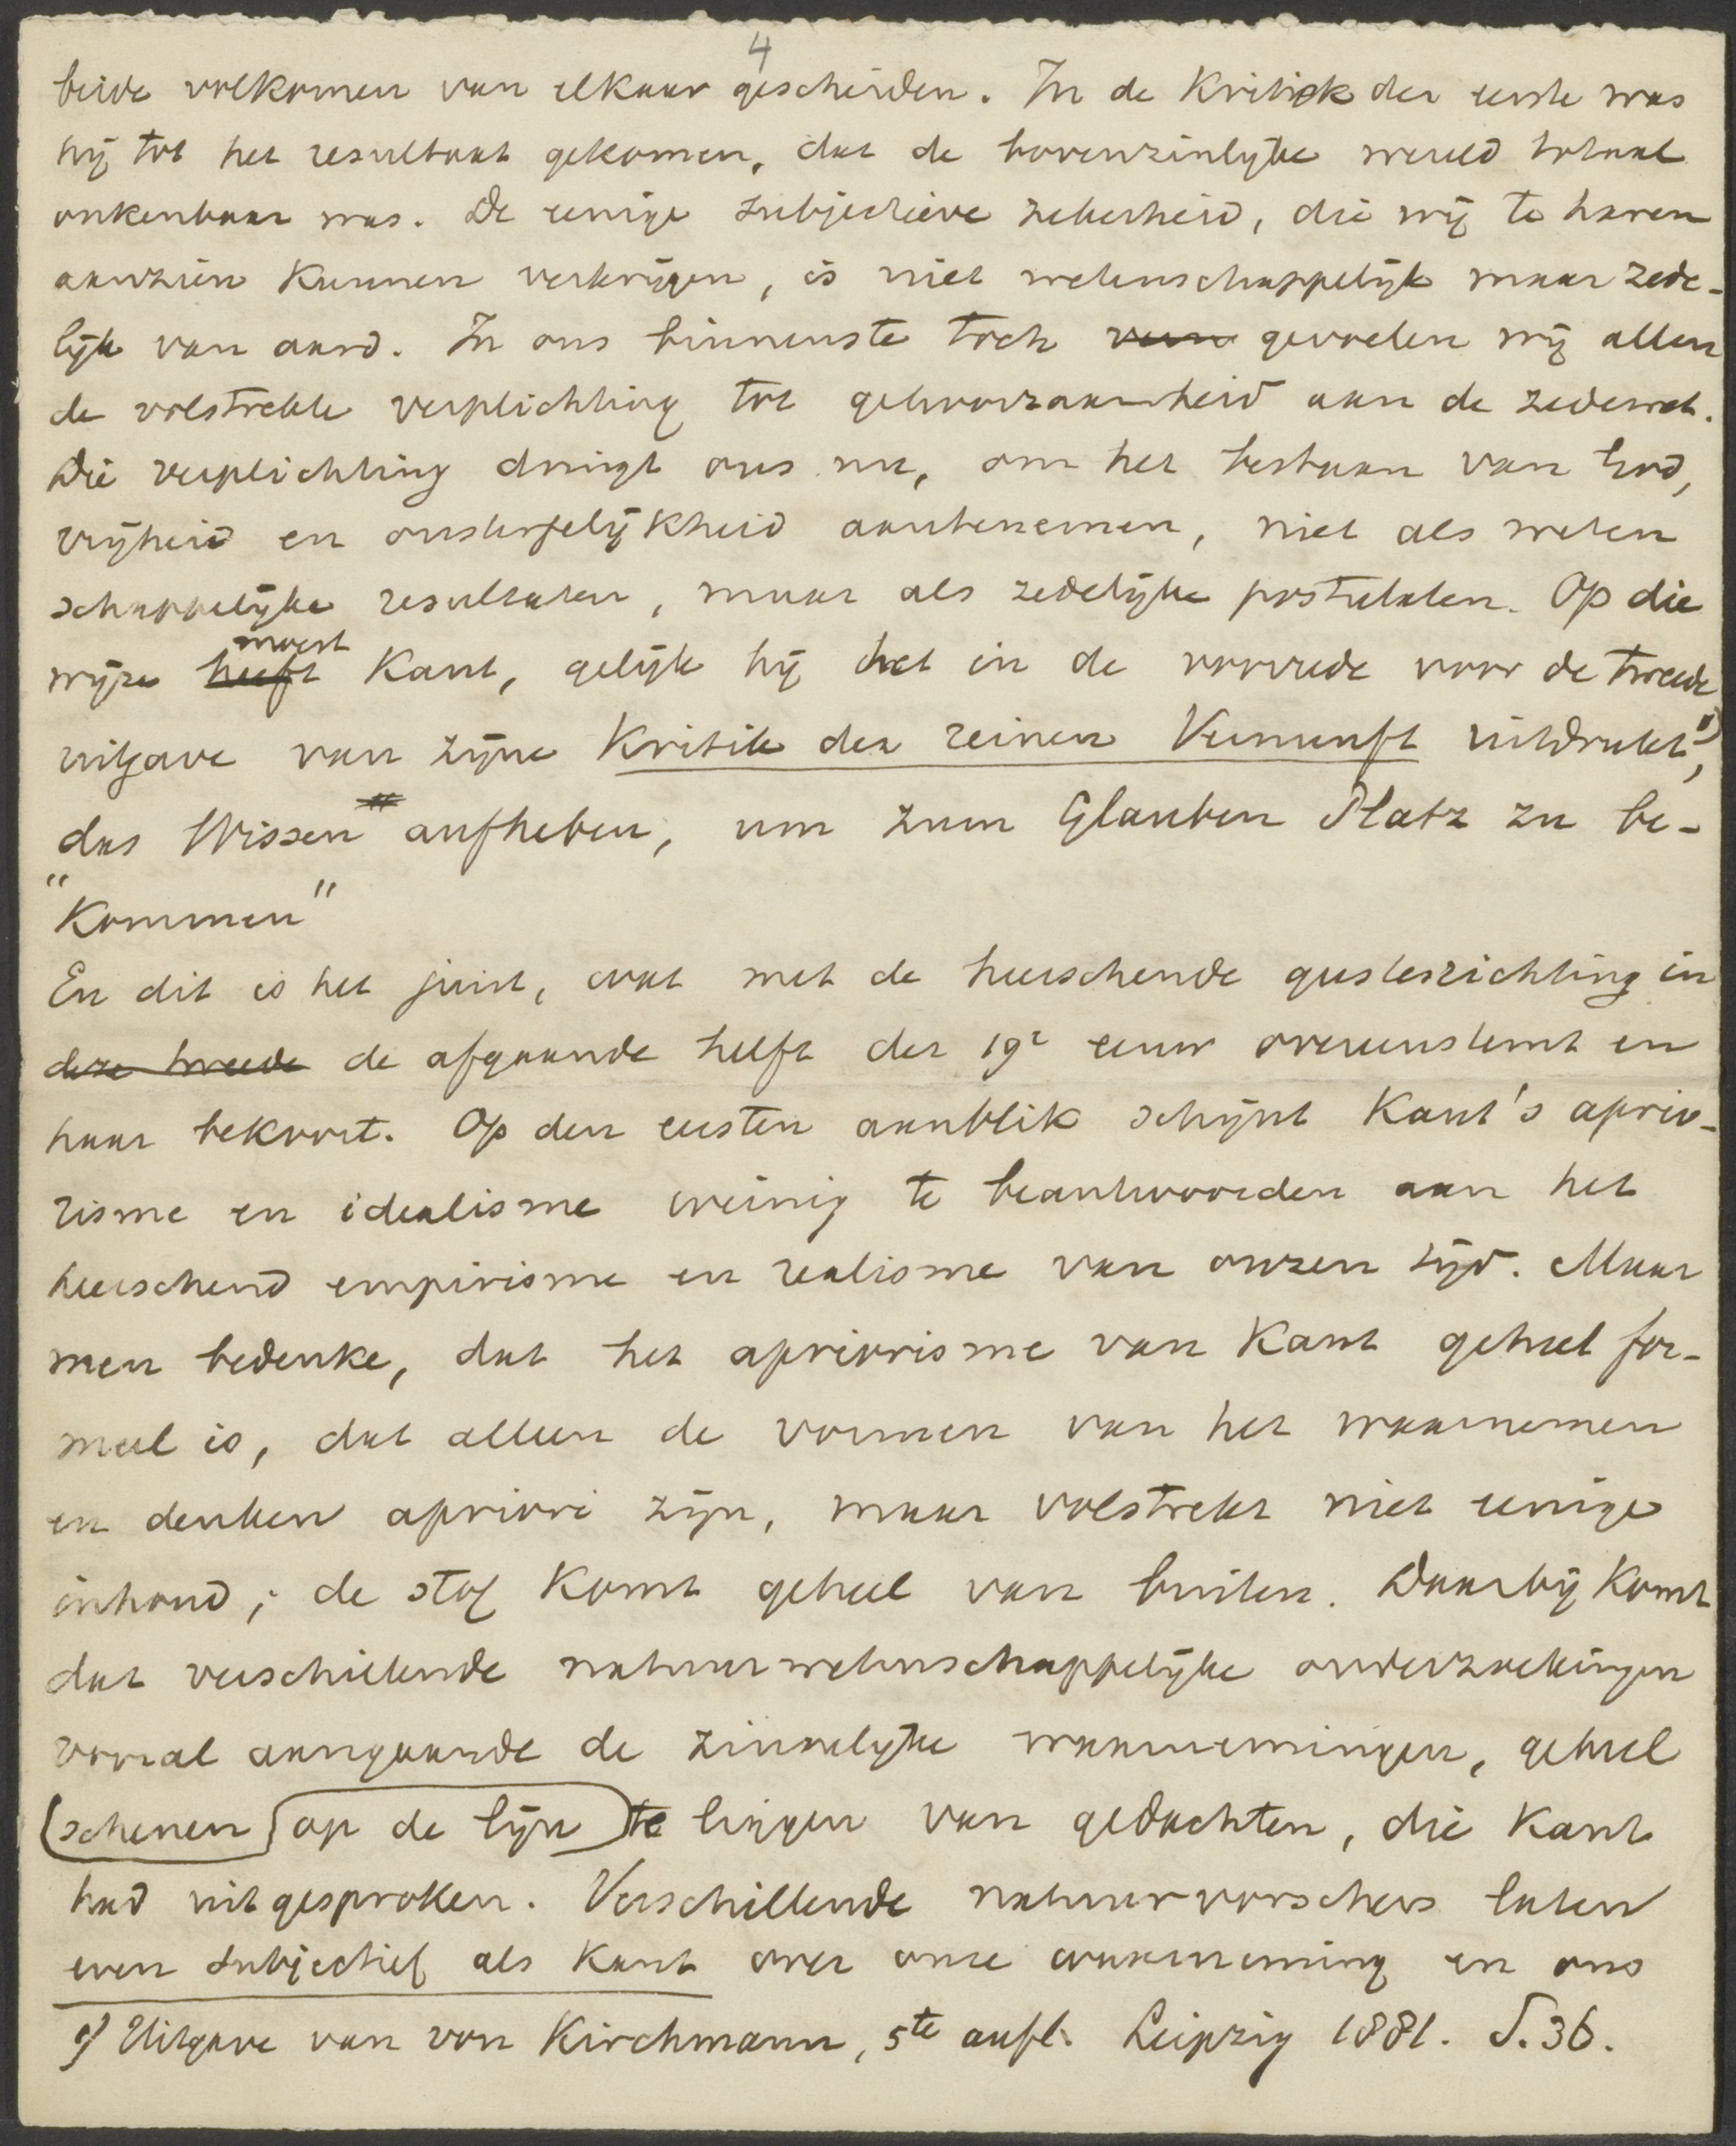 4
beide volkomen van elkaar gescheiden. In de Kritiek der eerste was
hij tot het resultaat gekomen, dat de bovenzinlijke wereld totaal
onkenbaar was. De eenige subjectieve zekerheid, die wij te haren
aanzien kunnen verkrijgen, is niet wetenschappelijk maar zede-
lijk van aard. In ons binnenste toch gevoelen wij allen
de volstrekte verplichting tot gehoorzaamheid aan de zedewet.
Die verplichting dringt ons nu, om het bestaan van God,
vrijheid en onsterfelijkheid aantenemen, niet als weten
schappelijke resultaten, maar als zedelijke postulaten. Op die
moest
wijze heeft Kant, gelijk hij het in de voorrede voor de tweede
uitgave van zijne Kritik der reinen Vernunft uitdrukt 1),
das Wissen aufheben, um zum Glauben Platz zu be-
"Kommen"
En dit is het juist, wat met de heerschende geestesrichting in
deze tweede de afgaande helft der 19e eeuw overeenstemt en
haar bekoort. Op den eersten aanblik schijnt Kant's aprio-
risme en idealisme weinig te beantwoorden aan het
heerschend empirisme en realisme van onzen tijd. Maar
men bedenke, dat het apriorisme van Kant geheel for-
meel is, dat alleen de vormen van het waarnemen
en denken apriori zijn, maar volstrekt niet eenige
inhoud; de stof komt geheel van buiten. Daarbij komt
dat verschillende natuurwetenschappelijke onderzoekingen
vooral aangaande de zinnelijke waarnemingen, geheel
schenen op de lijn te liggen van gedachten, die Kant
had uitgesproken. Verschillende natuurvorschers laten
even subjectief als Kant over onze waarneming en ons
1) Uitgave van von Kirchmann, 5te aufl. Leipzig 1881. S. 36.